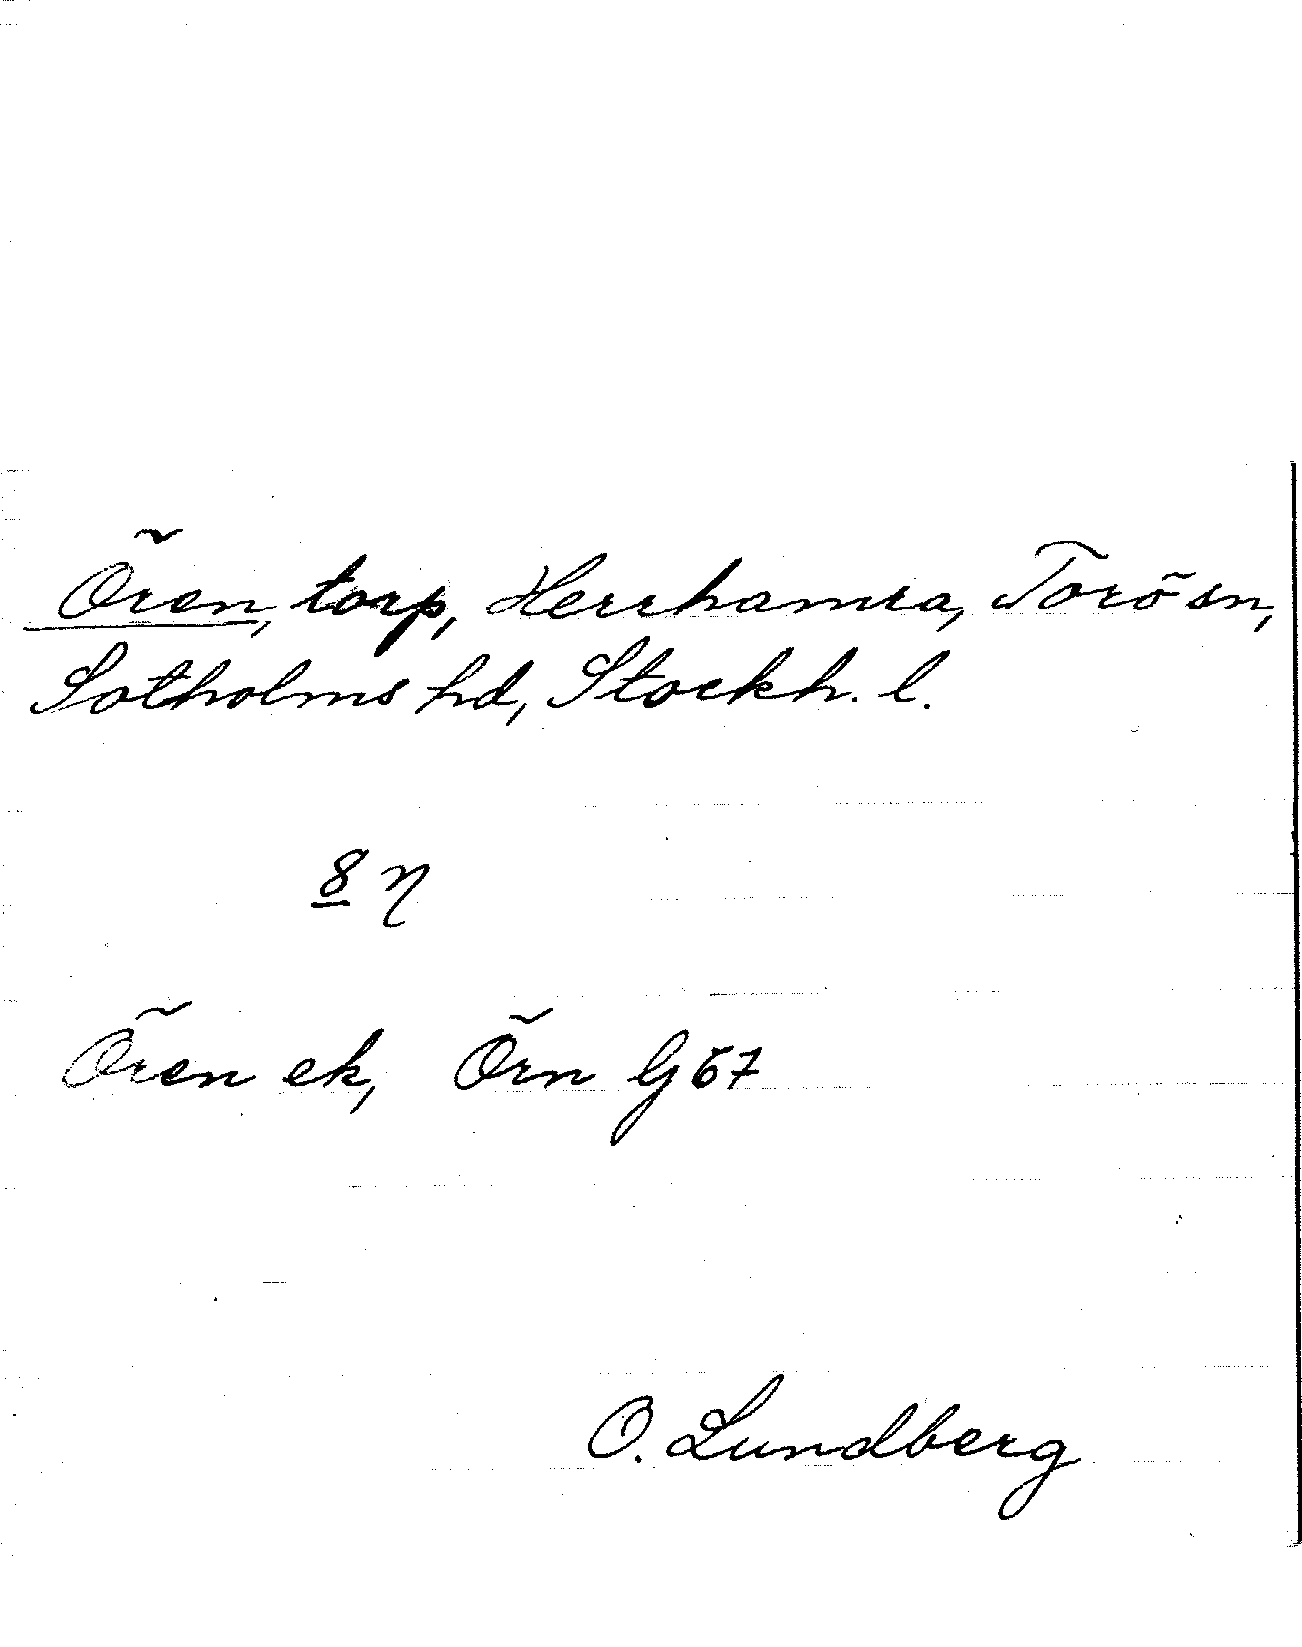 Ören, torp, Herrhamra, Torö sn,
Sotholms hd, Stockh. l.
8 η
Ören ek, Örn G67
O. Lundberg